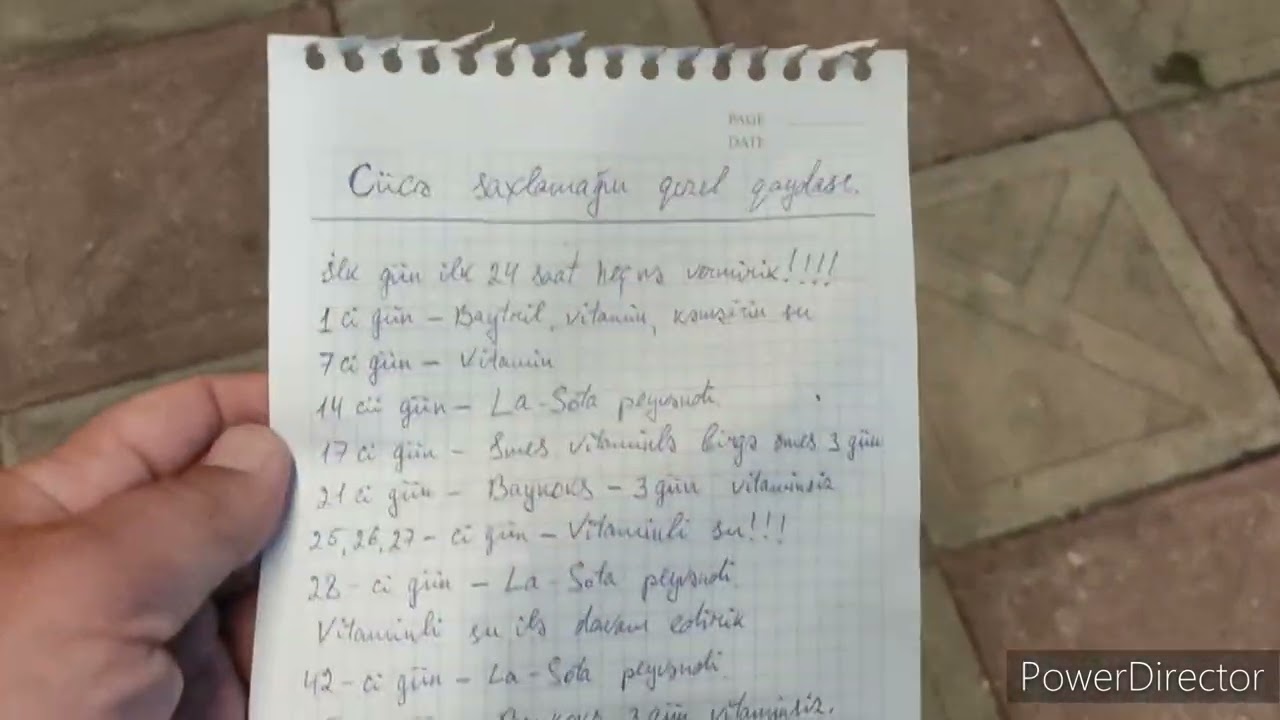 PAGE
DATE
Cücə saxlamağın qızıl qaydası.
İlk gün ilk 24 saat heç nə vermirik!!!!
1 ci gün – Baytril, vitamin, su
7 ci gün – Vitamin
14 cü gün – La-Sota peyvəndi.
17 ci gün – Smes vitaminlə birgə smes 3 gün
21 ci gün – Baykoks – 3 gün vitaminsiz
25, 26, 27 – ci gün – Vitaminli su!!!
28 – ci gün – La-Sota peyvəndi.
Vitaminli su ilə davam edirik
42 – ci gün – La-Sota peyvəndi.
Baykoks 3 gün vitaminsiz.
PowerDirector